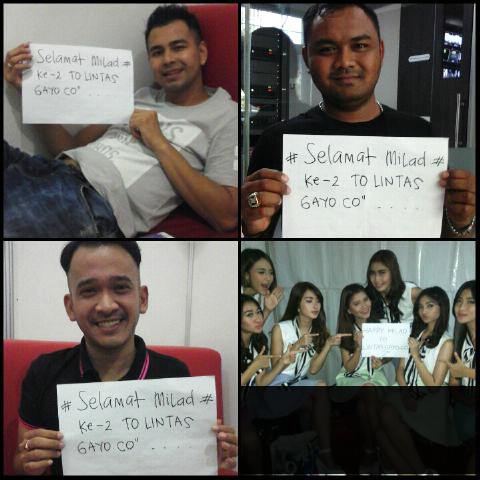 Selamat Milad #
Ke-2 TO LINTAS
GAYO.CO" ....
# Selamat Milad #
Ke-2 TO LINTAS
GAYO.CO" ....
# Selamat Milad #
Ke-2 TO LINTAS
GAYO.CO" ....
HAPPY MILAD
TO
LINTASGAYO.CO